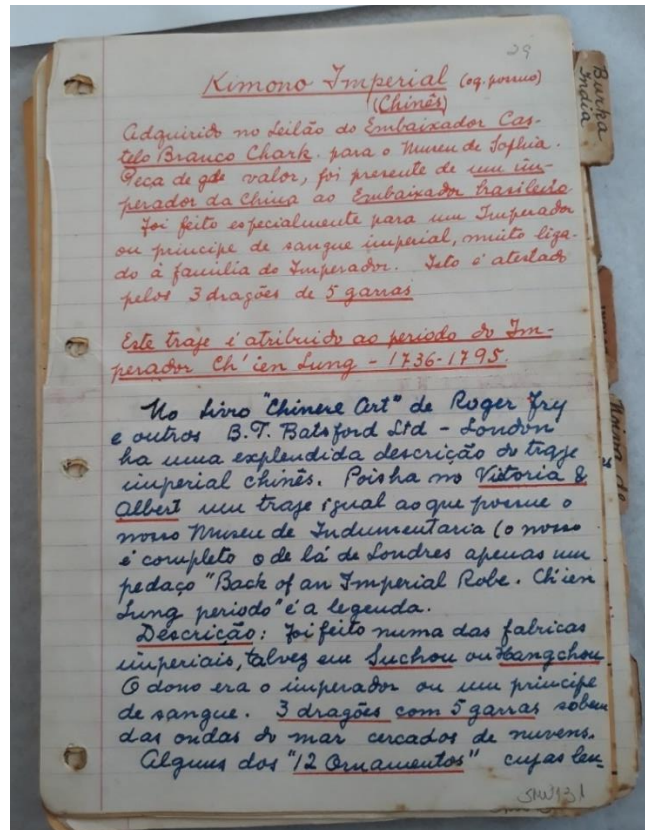 29
Kimono Imperial (oq. possuo)
(Chinês)
Adquirido no Leilão do Embaixador Cas-
telo Branco Chark. para o Museu de Sophia.
Peça de gde valor, foi presente de um im-
perador da China ao Embaixador brasileiro.
Foi feito especialmente para um Imperador
ou principe de sangue imperial, muito liga-
do à familia do Imperador. Isto é atestado
pelos 3 dragões de 5 garras
Este traje é atribuido ao periodo do Im-
perador Ch'ien Lung - 1736-1795.
No livro "Chinese Art" de Roger Fry
e outros B.T. Batsford Ltd - London
ha uma explendida descrição do traje
imperial chinês. Pois ha no Vitoria &
Albert um traje igual ao que possue o
nosso Museu de Indumentaria (o nosso
é completo o de lá de Londres apenas um
pedaço "Back of an Imperial Robe. Ch'ien
Lung periodo" é a legenda.
Descrição: Foi feito numa das fabricas
imperiais, talvez em Suchou ou Hangchou
O dono era o imperador ou um principe
de sangue. 3 dragões com 5 garras sobem
das ondas do mar cercados de nuvens.
Alguns dos "12 Ornamentos" cujas len-
Burka
India